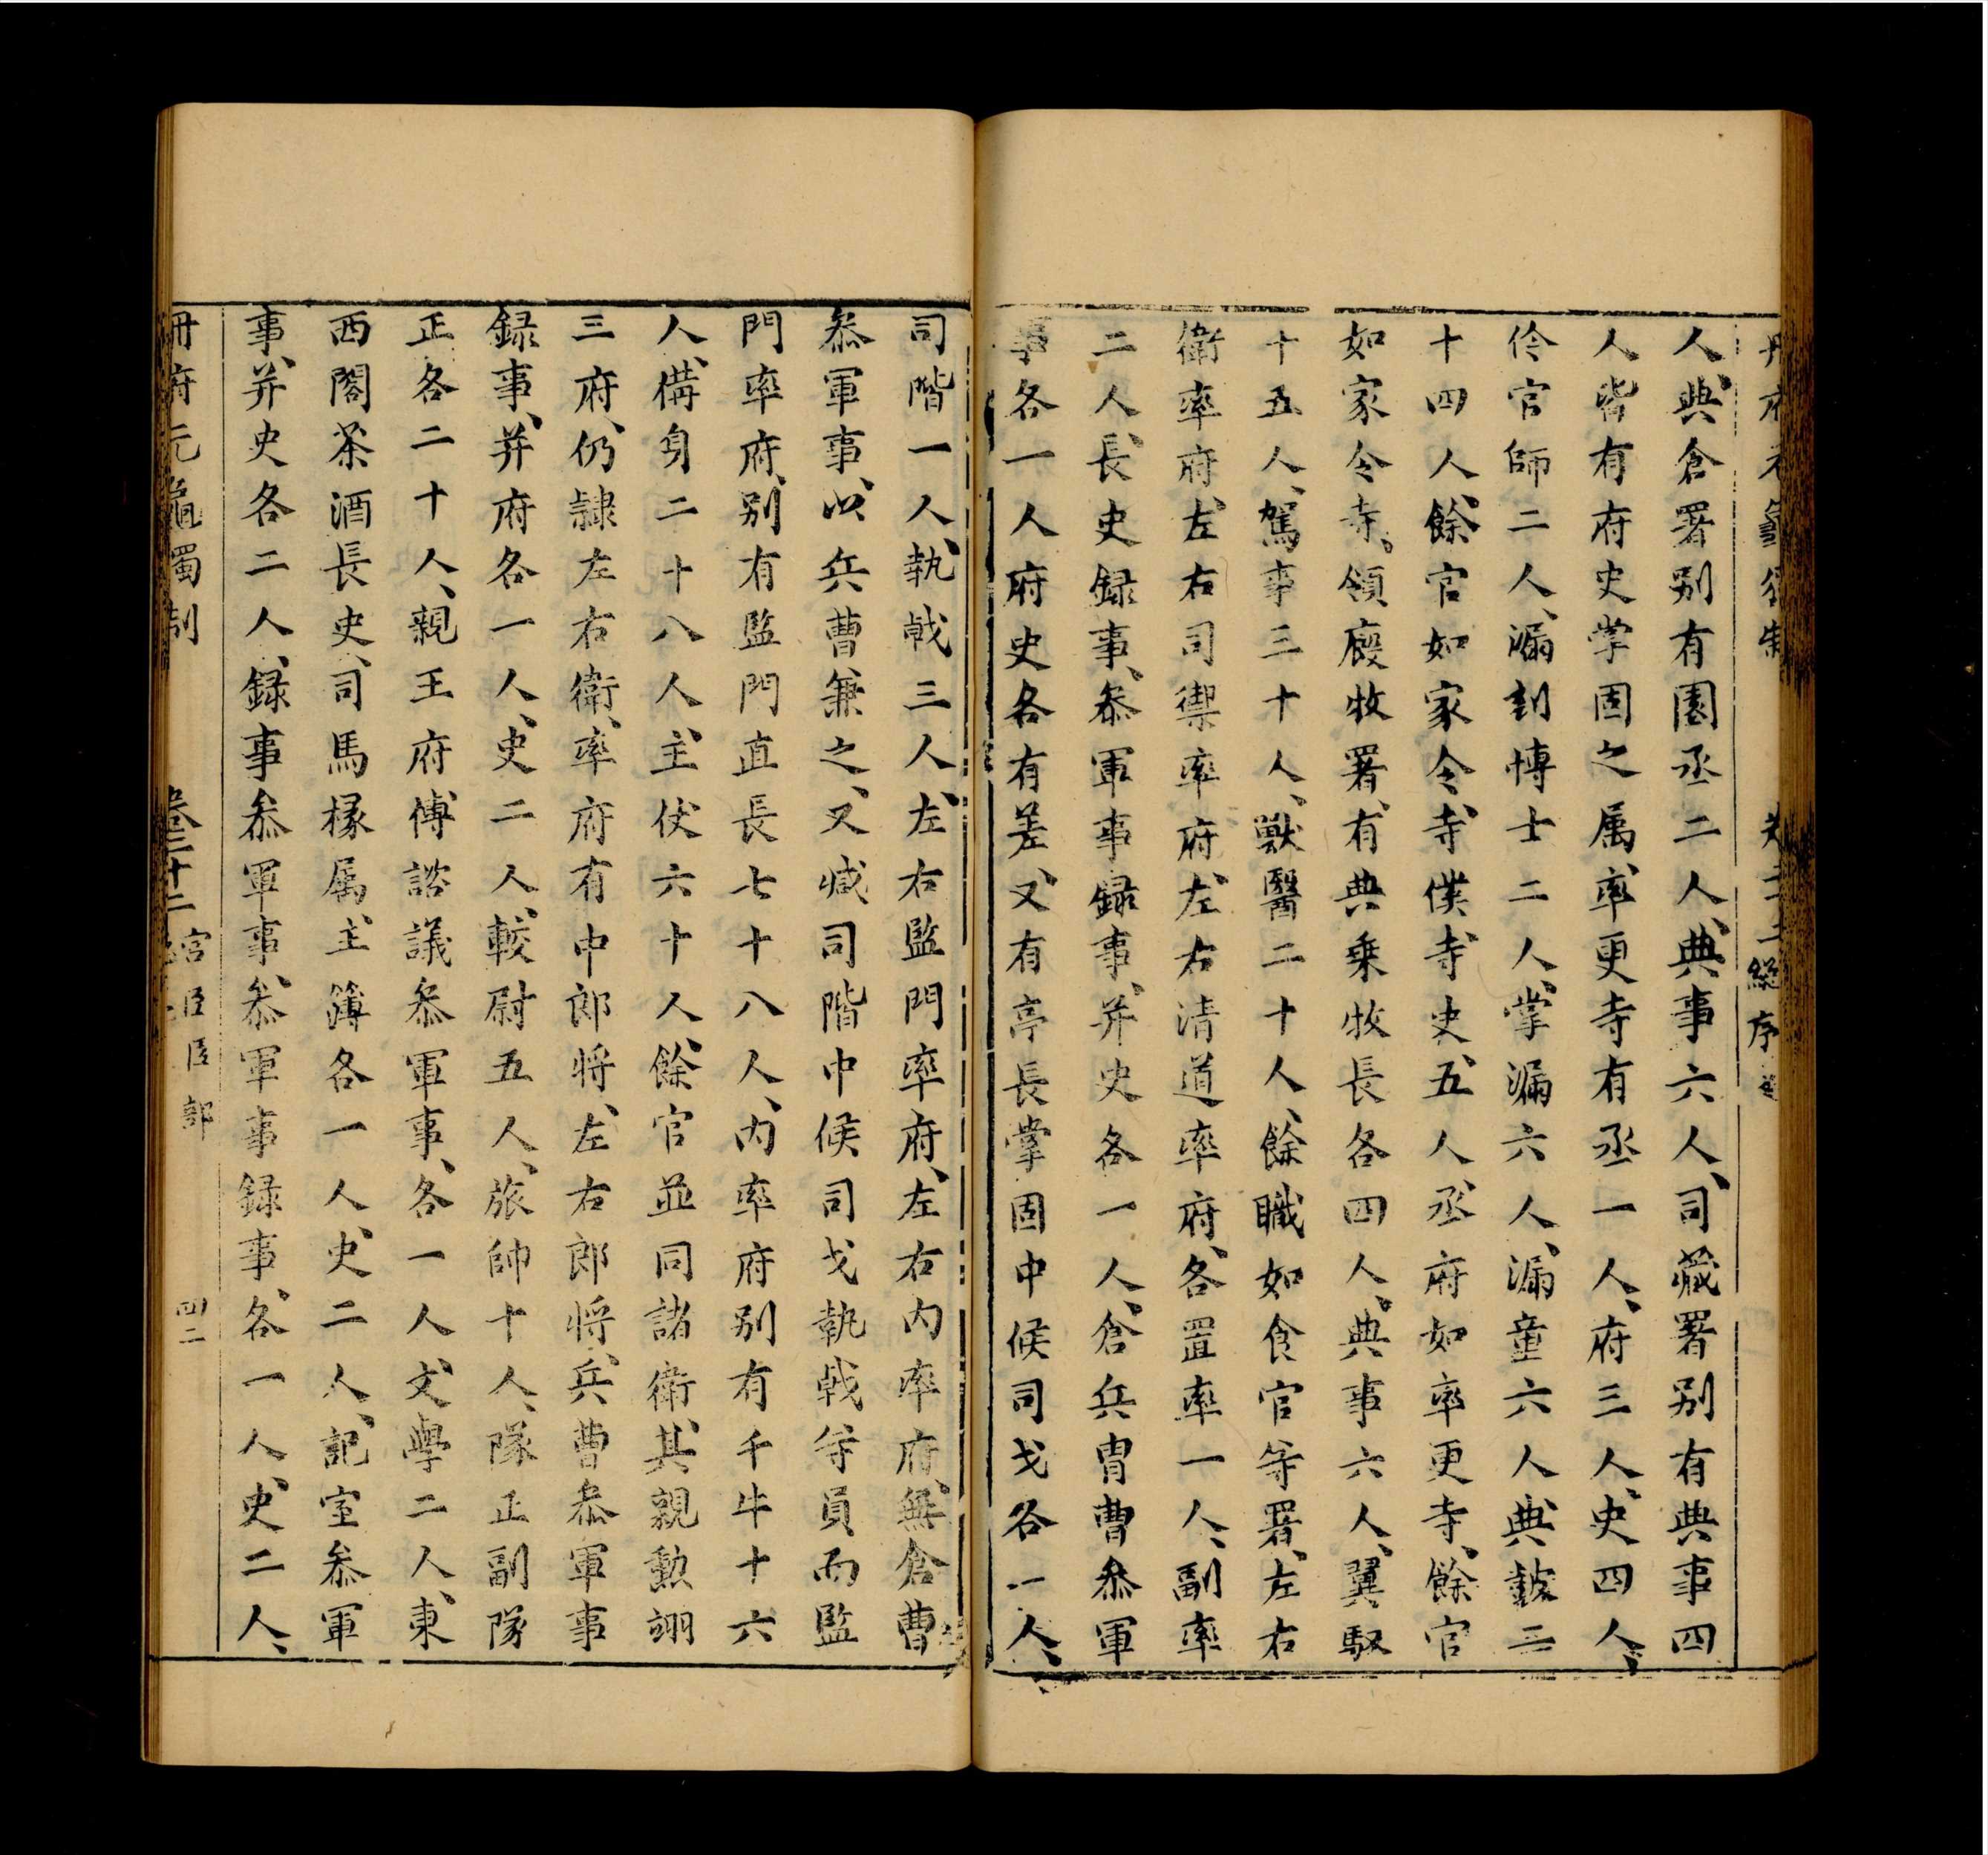 人典倉署别有園丞二人典事六人司藏署别有典事四
人皆有府史掌固之属率更寺有丞一人府三人史四人
伶官師二人漏刻博士二人掌漏六人漏童六人典鼓二
十四人餘官如家令寺僕寺史五人丞府如率更寺餘官
如家令寺領廐牧署有典乗牧長各四人典事六人翼馭
十五人駕事三十人獸醫二十人餘職如食官等署左右
衛率府左右司禦率府左右清道率府各置率一人副率
二人長史録事叅軍事録事并史各一人倉兵胄曹叅軍
事各一人府史各有差又有亭長掌固中候司戈各一人
司階一人執㦸三人左右監門率府左右内率府無倉曹
叅軍事以兵曹兼之又减司階中候司戈執㦸等員而監
門率府别有監門直長七十八人内率府别有千牛十六
人備身二十八人主仗六十人餘官並同諸衛其親勲翊
三府仍隷左右衛率府有中郎将左右郎将兵曹叅軍事
録事并府各一人史二人較尉五人旅帥十人隊正副隊
正各二十人親王府傅諮議叅軍事各一人文學二人東
西閤祭酒長史司馬掾属主簿各一人史二人記室叅軍
事并史各二人録事叅軍事叅軍事録事各一人史二人